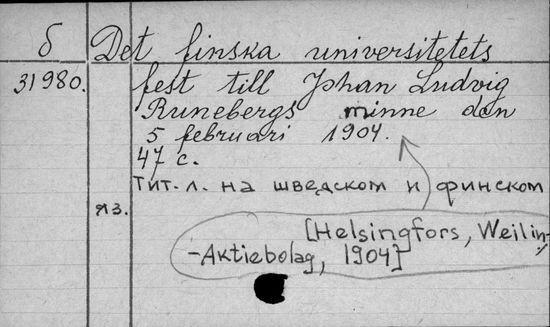 б Det finska universitetets
31980. fest till Johan Ludvig
Runebergs minne den
5 februari 1904.
47 с.
Тит. л. на шведском и финском
яз.
[Helsingfors, Weilin-
-Aktiebolag, 1904]